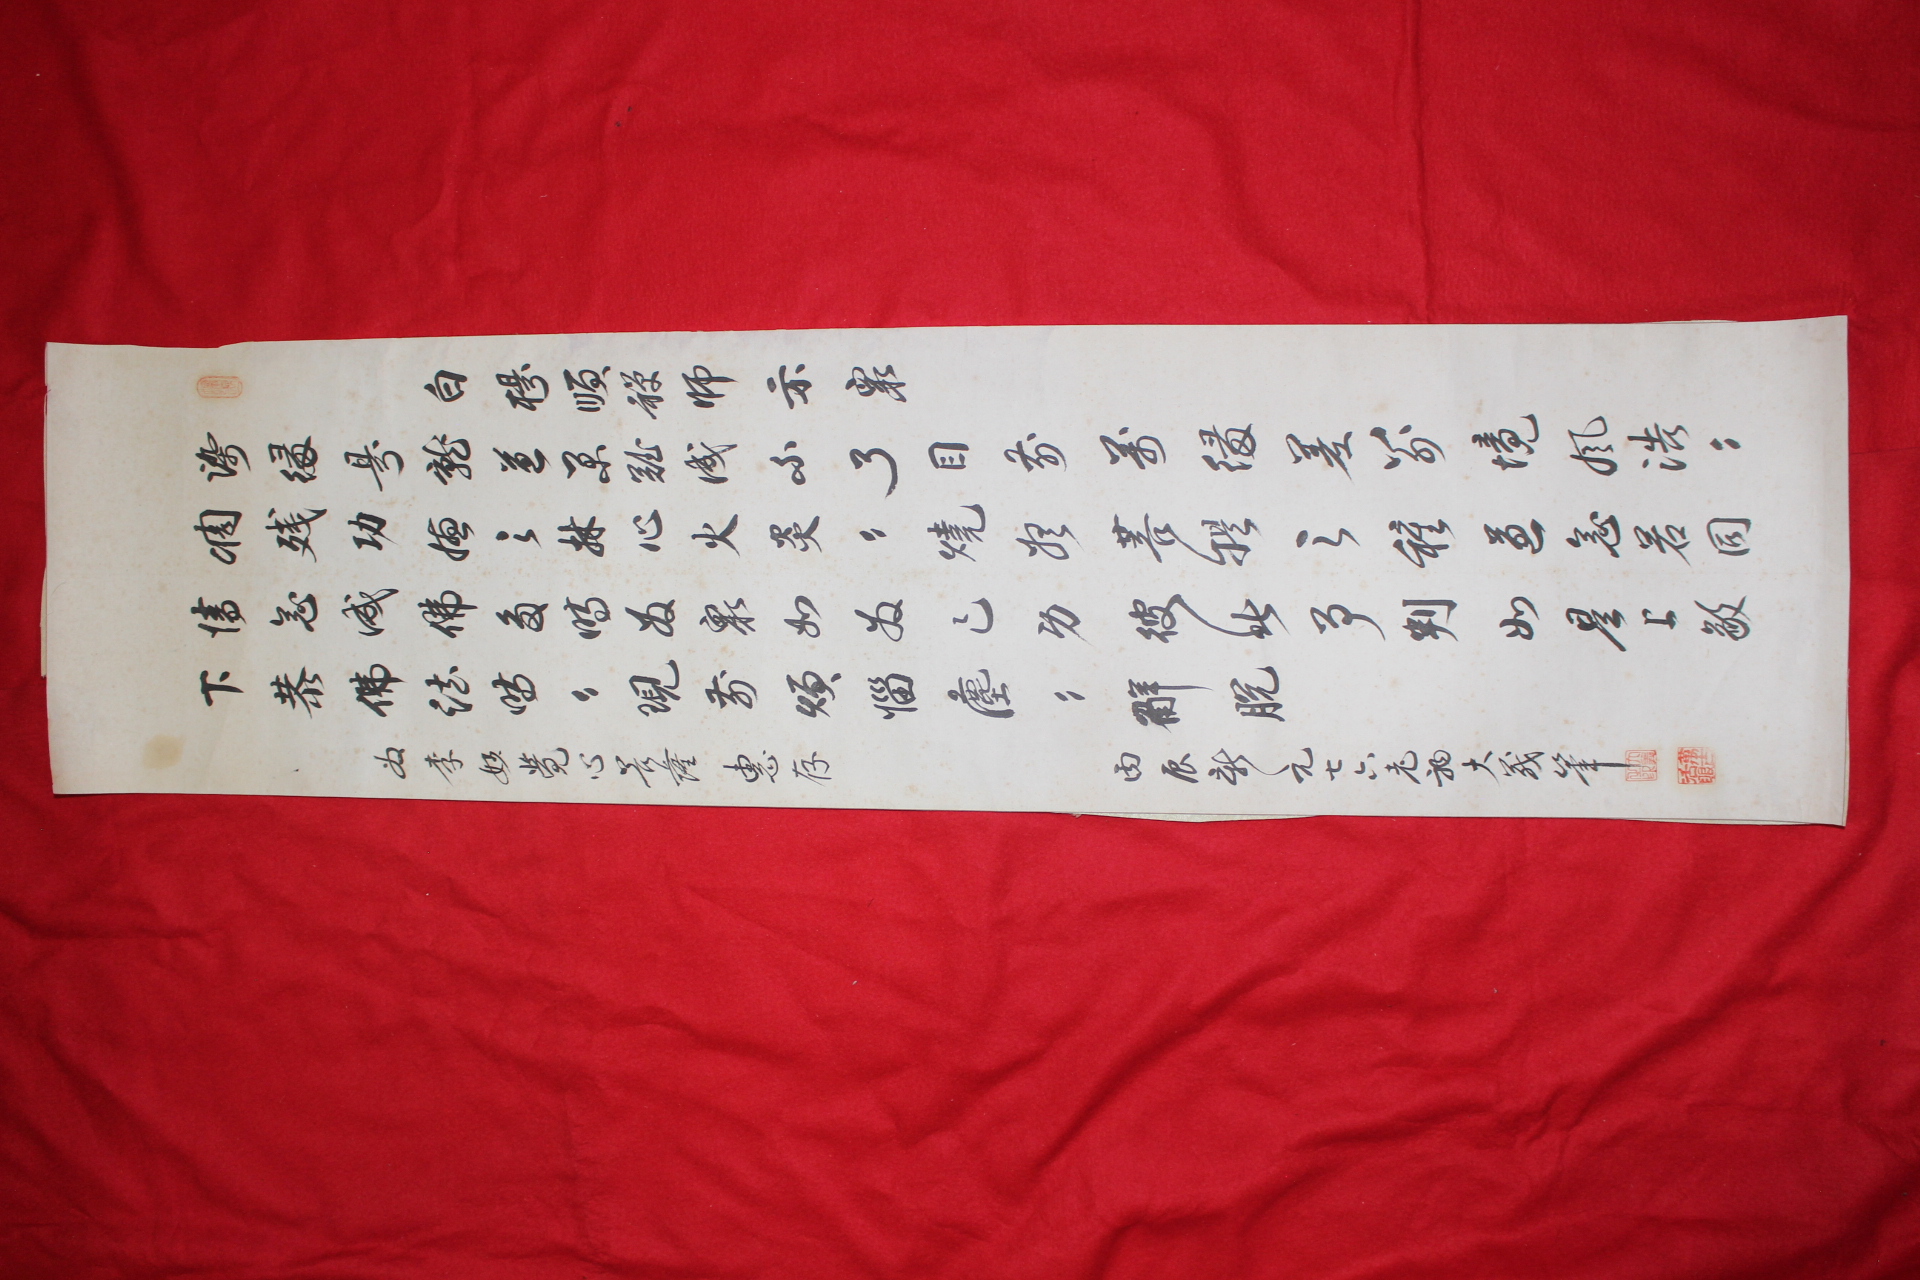 白楊順禪師示衆
染緣易就道業難成不了目前萬緣差別境風浩々
凋殘功德之林心火炎々燒盡菩提之種道念若同
情念成佛多時為衆如為己身彼此事判如是上敬
下恭佛法時々現前煩惱塵々解脫
為李覺心菩薩 惠存
丙辰新元七六老衲大義筆